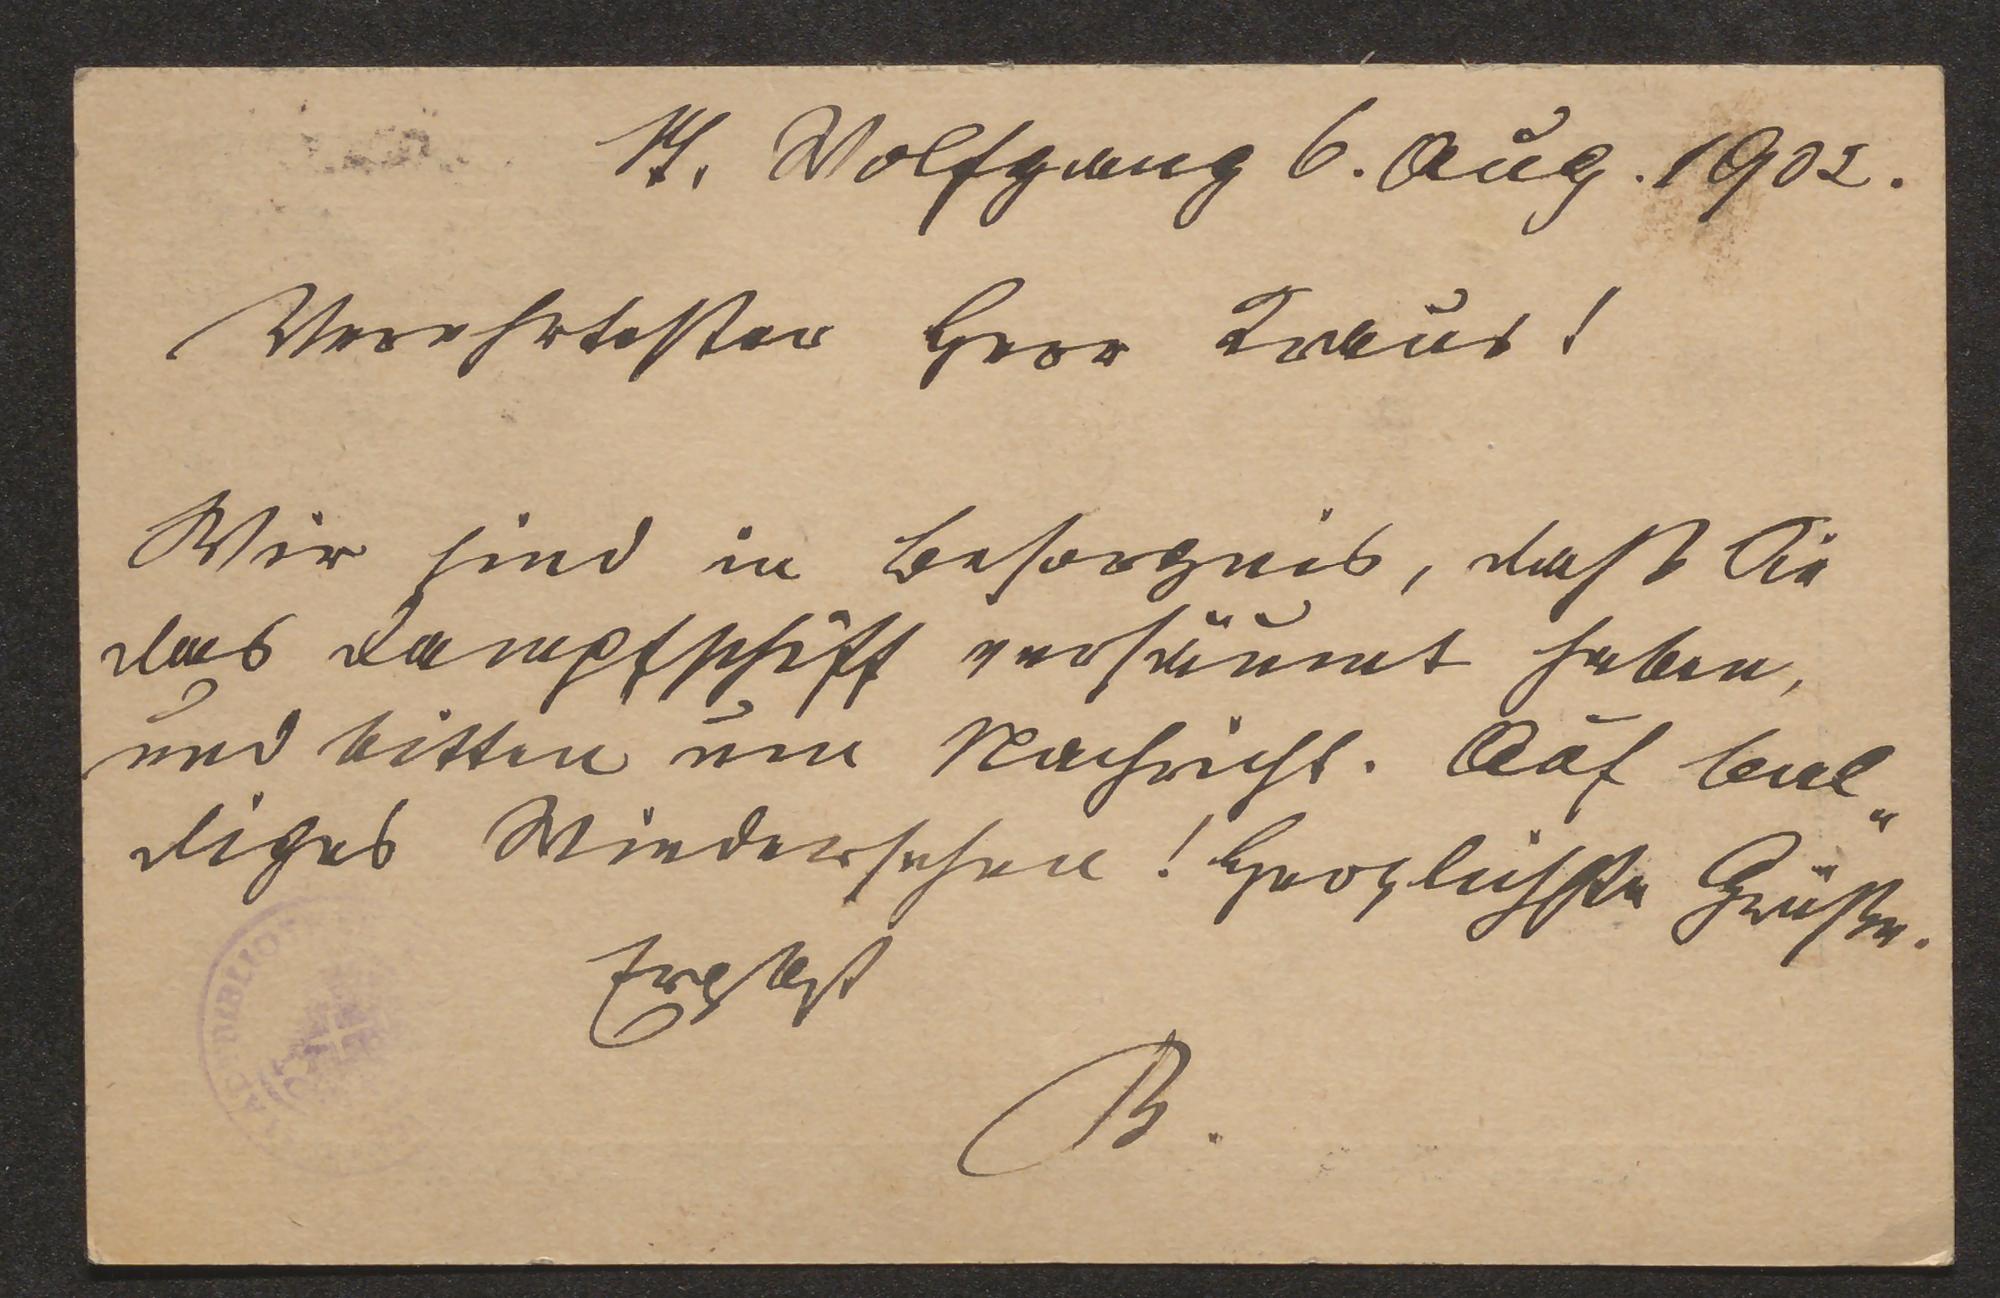 St. Wolfgang 6. Aug. 1902.
Verehrtester Herr Kraus!
Wir sind in Besorgnis, dass Sie
das Dampfschiff versäumt haben,
und bitten um Nachricht. Auf bal„
diges Wiedersehen! Herzlichste Grüsse.
Ergbst
B.
BIBLIO